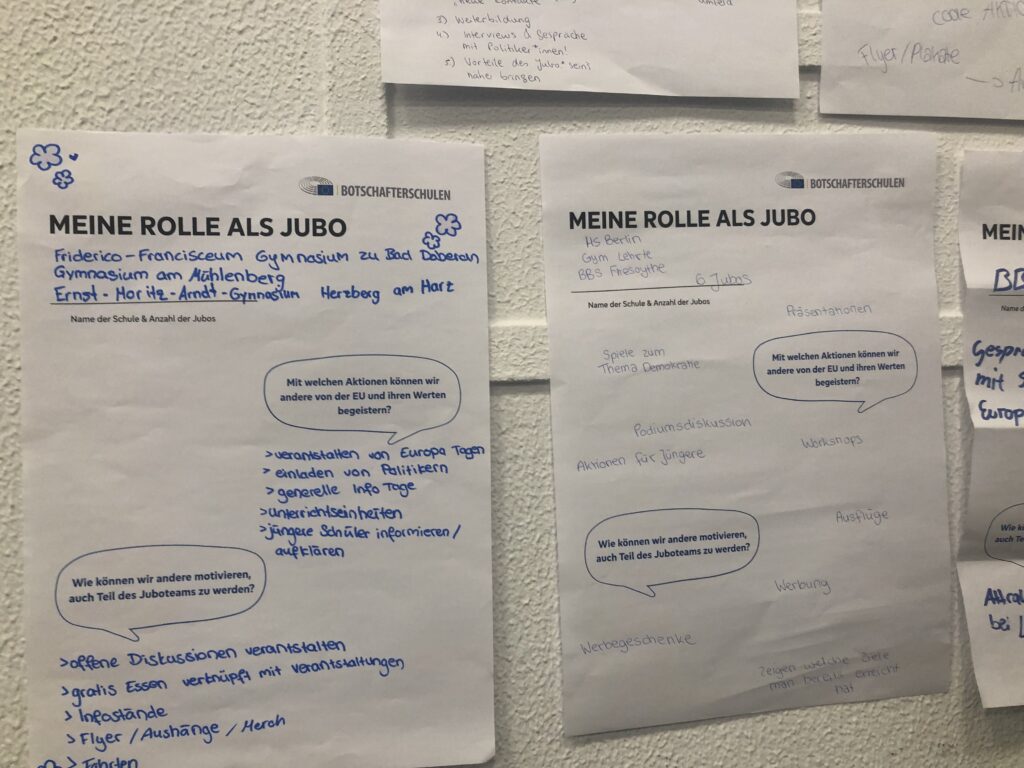 3) Weiterbildung
4) Interviews & Gespräche
mit Politiker*innen!
5) Vorteile des Jubo*seins
nahe bringen
umfeld
Flyer/Plakate
BOTSCHAFTERSCHULEN
MEINE ROLLE ALS JUBO
Friderico-Francisceum Gymnasium zu Bad Doberan
Gymnasium am Mühlenberg
Ernst-Moritz-Arndt-Gymnasium Herzberg am Harz
Name der Schule & Anzahl der Jubos
Mit welchen Aktionen können wir
andere von der EU und ihren Werten
begeistern?
>verantstalten von Europa Tagen
> einladen von Politikern
> generelle Info Tage
>unterrichtseinheiten
>jüngere Schüler informieren/
aufklären
Wie können wir andere motivieren,
auch Teil des Juboteams zu werden?
>offene Diskussionen verantstalten
>gratis Essen verknüpft mit verantstaltungen
> Infostände
> Flyer / Aushänge / Merch
> Fahrten
BOTSCHAFTERSCHULEN
MEINE ROLLE ALS JUBO
HS Berlin
Gym Lehrte
BBS Friesoythe
6 Jubos
Name der Schule & Anzahl der Jubos
Präsentationen
Spiele zum
Thema Demokratie
Mit welchen Aktionen können wir
andere von der EU und ihren Werten
begeistern?
Podiumsdiskussion
Workshops
Aktionen für Jüngere
Ausflüge
Wie können wir andere motivieren,
auch Teil des Juboteams zu werden?
Werbung
Werbegeschenke
zeigen welche Ziele
man bereits erreicht
hat
MEIN
Name d
mit
Wie kö
auch Te
bei